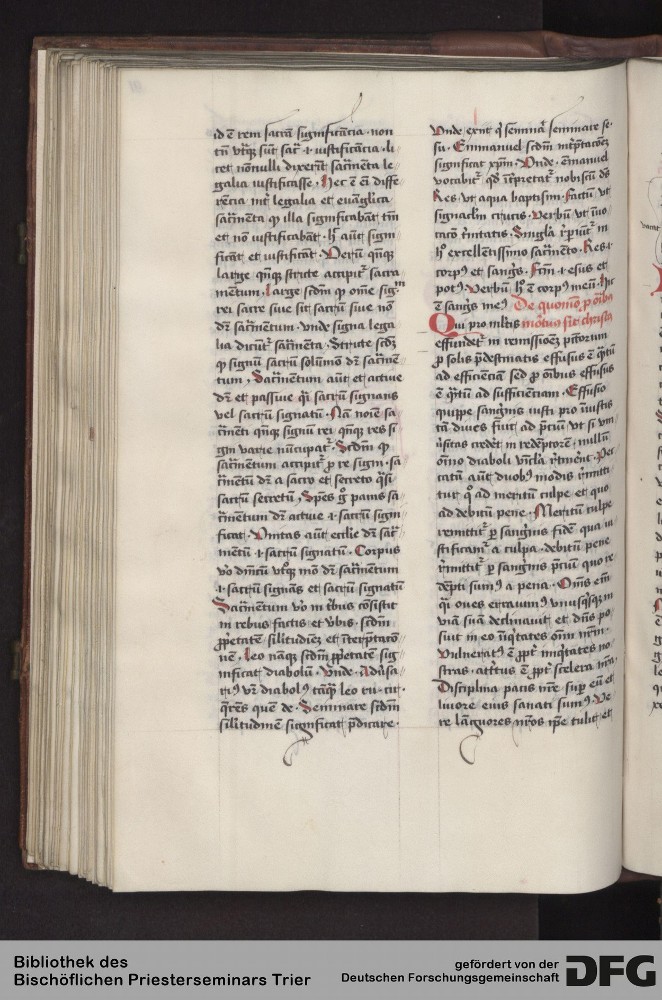 id ē rem sacrā significācia · non
tū vtr̄q̄ sūt sacr̄ · ⁊ iustificācia · li
cet nōnulli dixerūt sacr̄mēta le
galia iustificasse · hec ē ei diffe
rēcia int̄ legalia et euāglica
sacr̄mēta qꝫ illa significabāt tm̄
et nō iustificabāt · h̄ aūt signi
ficāt et iustificāt · Verū qn̄qꝫ
large qn̄qꝫ stricte accipit̄ sacra
mentum · large scdm̄ qꝫ om̄e sig.ᵐ
rei sacre siue sit sacrū siue nō
dr̄ sacr̄mentum · vnde signa lega
lia dicūt̄ sacr̄menta · Stricte scdꝫ
qꝫ signū sacrū solūmō dr̄ sacr̄mē
tum · Sacr̄mentum aūt et actiue
dr̄ et passiue qͥ sacrū signans
vel sacrū signatū · Nā noīe sa
cr̄menti qn̄qꝫ signū rei qn̄qꝫ res si
gni varie nūcupat̄ · Scdm̄ qꝫ
sacr̄mentum accipit̄ ꝓ re signi · sa
cr̄mentū dr̄ a sacro et secreto qͥsi
sacrū secretū · Spēs gͦ panis sa
cr̄mentum dr̄ actiue · ⁊ sacrū signi
ficat · Vnitas aūt eccl̄ie dr̄ sacr̄
mentū · ⁊ sacrū signatū · Corpus
vͦo dn̄icū vtͦqꝫ mō dr̄ sacr̄mentum
⁊ sacrū signās et sacrū signatū
Sacr̄mentum vͦo in tͥbus cōsistit
in rebus factis et vͦbis · scdm̄
ꝓpͥetatē silitudiēꝫ et īterp̄tacō
nē · leo nāqꝫ scdm̄ ꝓpͥetatē sig
nificat diabolū · vnde · Adūsa
riꝰ vr̄ diabolꝰ tāqͣꝫ leo ru · cir ·
q̄rēs quē de · Seminare scdm̄
silitudinē significat p̄dicare ·
Vnde exiit qͥ seminat̄ seminare se
su · Emmanuel scdm̄ int̄p̄tacōeꝫ
significat xp̄m · Vnde · emanuel
vocabit̄ qd̄ īt̄pretat̄ nobiscū ds̄
Res · vt aqua baptismi · Factū · vt
signaclm̄ crucis · Verbū · vt īuo
cacō tͥnitatis · Singla r̄piūt̄ in
h̄ excellentissimo sacr̄mēto · Res ·
corpꝰ et sangͥs · Fcm̄ · ⁊ esus et
potꝰ · Verbū · h̄ ē corpꝰ meū · hic
ē sangͥs meꝰ De quomō ꝓ oībꝫ
Qui pro multis mōtuus sit christꝰ
effundet̄ in remissioēꝫ pctorum
ꝓ solis p̄destinatis effusus ē qͣtū
ad efficiēciā sed ꝓ oībus effusus
ē qͣtū ad sufficienciam · Effusio
quippe sangͥnis iusti pro īiustis
tā diues fuit ad p̄ciū vt si vni
ūsitas credet̄ in redēptorē · nullū
oīno diaboli vīcla r̄tinent · Pec
catū aūt duobꝰ modis rͥmitti
tur qͦ ad meritū culpe et quo
ad debitū pene · Meritū culpe
remittit̄ ꝑ sangͥnis fidē qua iu
stificamͥ a culpa · debitū pene
rͥmittit̄ ꝑ sangͥnis p̄ciū quo re
dēpti sumꝰ a pena · Om̄s em̄
qͣi oues errauimꝰ vnusqͥsqꝫ in
viā suā declinauit et dn̄s po
suit in eo īiqͥtates om̄ nr̄m ·
Vulneratꝰ ē ꝓpt̄ iniqͥtates no
stras · attͥtus ē ꝓpt̄ scelera nr̄a ·
Disciplina pacis nr̄e suꝑ eū et
liuore eius sanati sumꝰ · Ve
re lāguores nr̄os ip̄e tulit et
Bibliothek des
Bischöflichen Priesterseminars Trier
gefördert von der
Deutschen Forschungsgemeinschaft
DFG